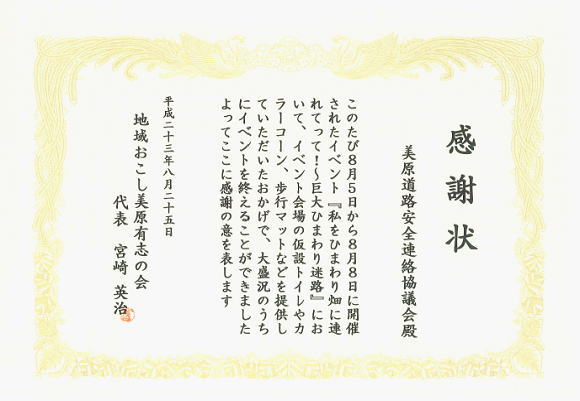 感謝状
美原道路安全連絡協議会殿
このたび８月５日から８月８日に開催
されたイベント『私をひまわり畑に連
れてって！～巨大ひまわり迷路』にお
いて、イベント会場の仮設トイレやカ
ラーコーン、歩行マットなどを提供し
ていただいたおかげで、大盛況のうち
にイベントを終えることができました
よってここに感謝の意を表します
平成二十三年八月二十五日
地域おこし美原有志の会
代表　宮崎　英治